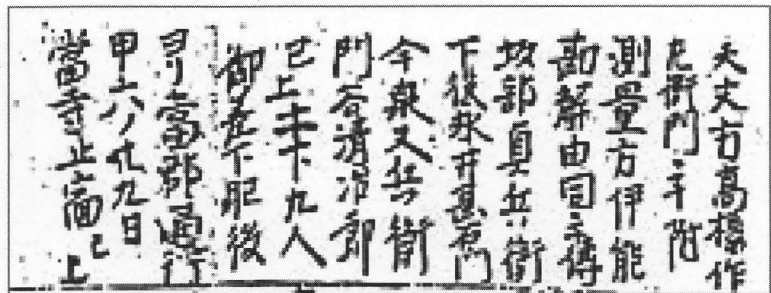 天文方高橋作
左衛門手附
測量方伊能
勘解由同主傳
坂部貞兵衛
下役永井甚右門
今泉又兵衛
門谷清次郎
已上上下九人
御差下肥後
ヨリ當郡通行
申六ノ廿九日
當寺止宿已上